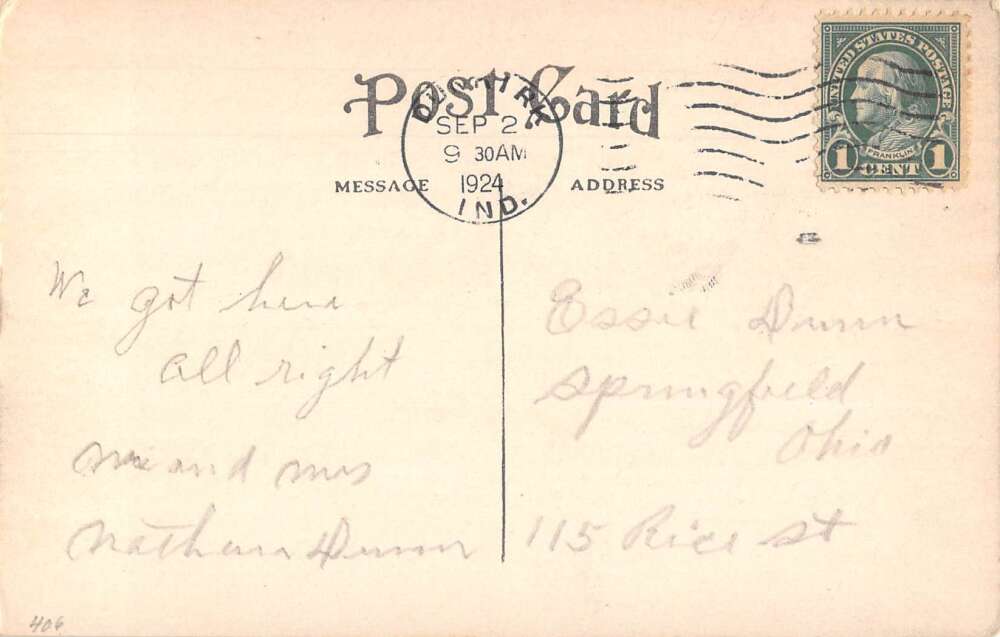 Post Card
SEP 2
9 30AM
1924
IND.
UNITED STATES POSTAGE
FRANKLIN
1 CENT 1
MESSAGE
ADDRESS
We got here
all right
Mr and Mrs
Nathan Dunn
Essie Dunn
Springfield
Ohio
115 Rice St
406